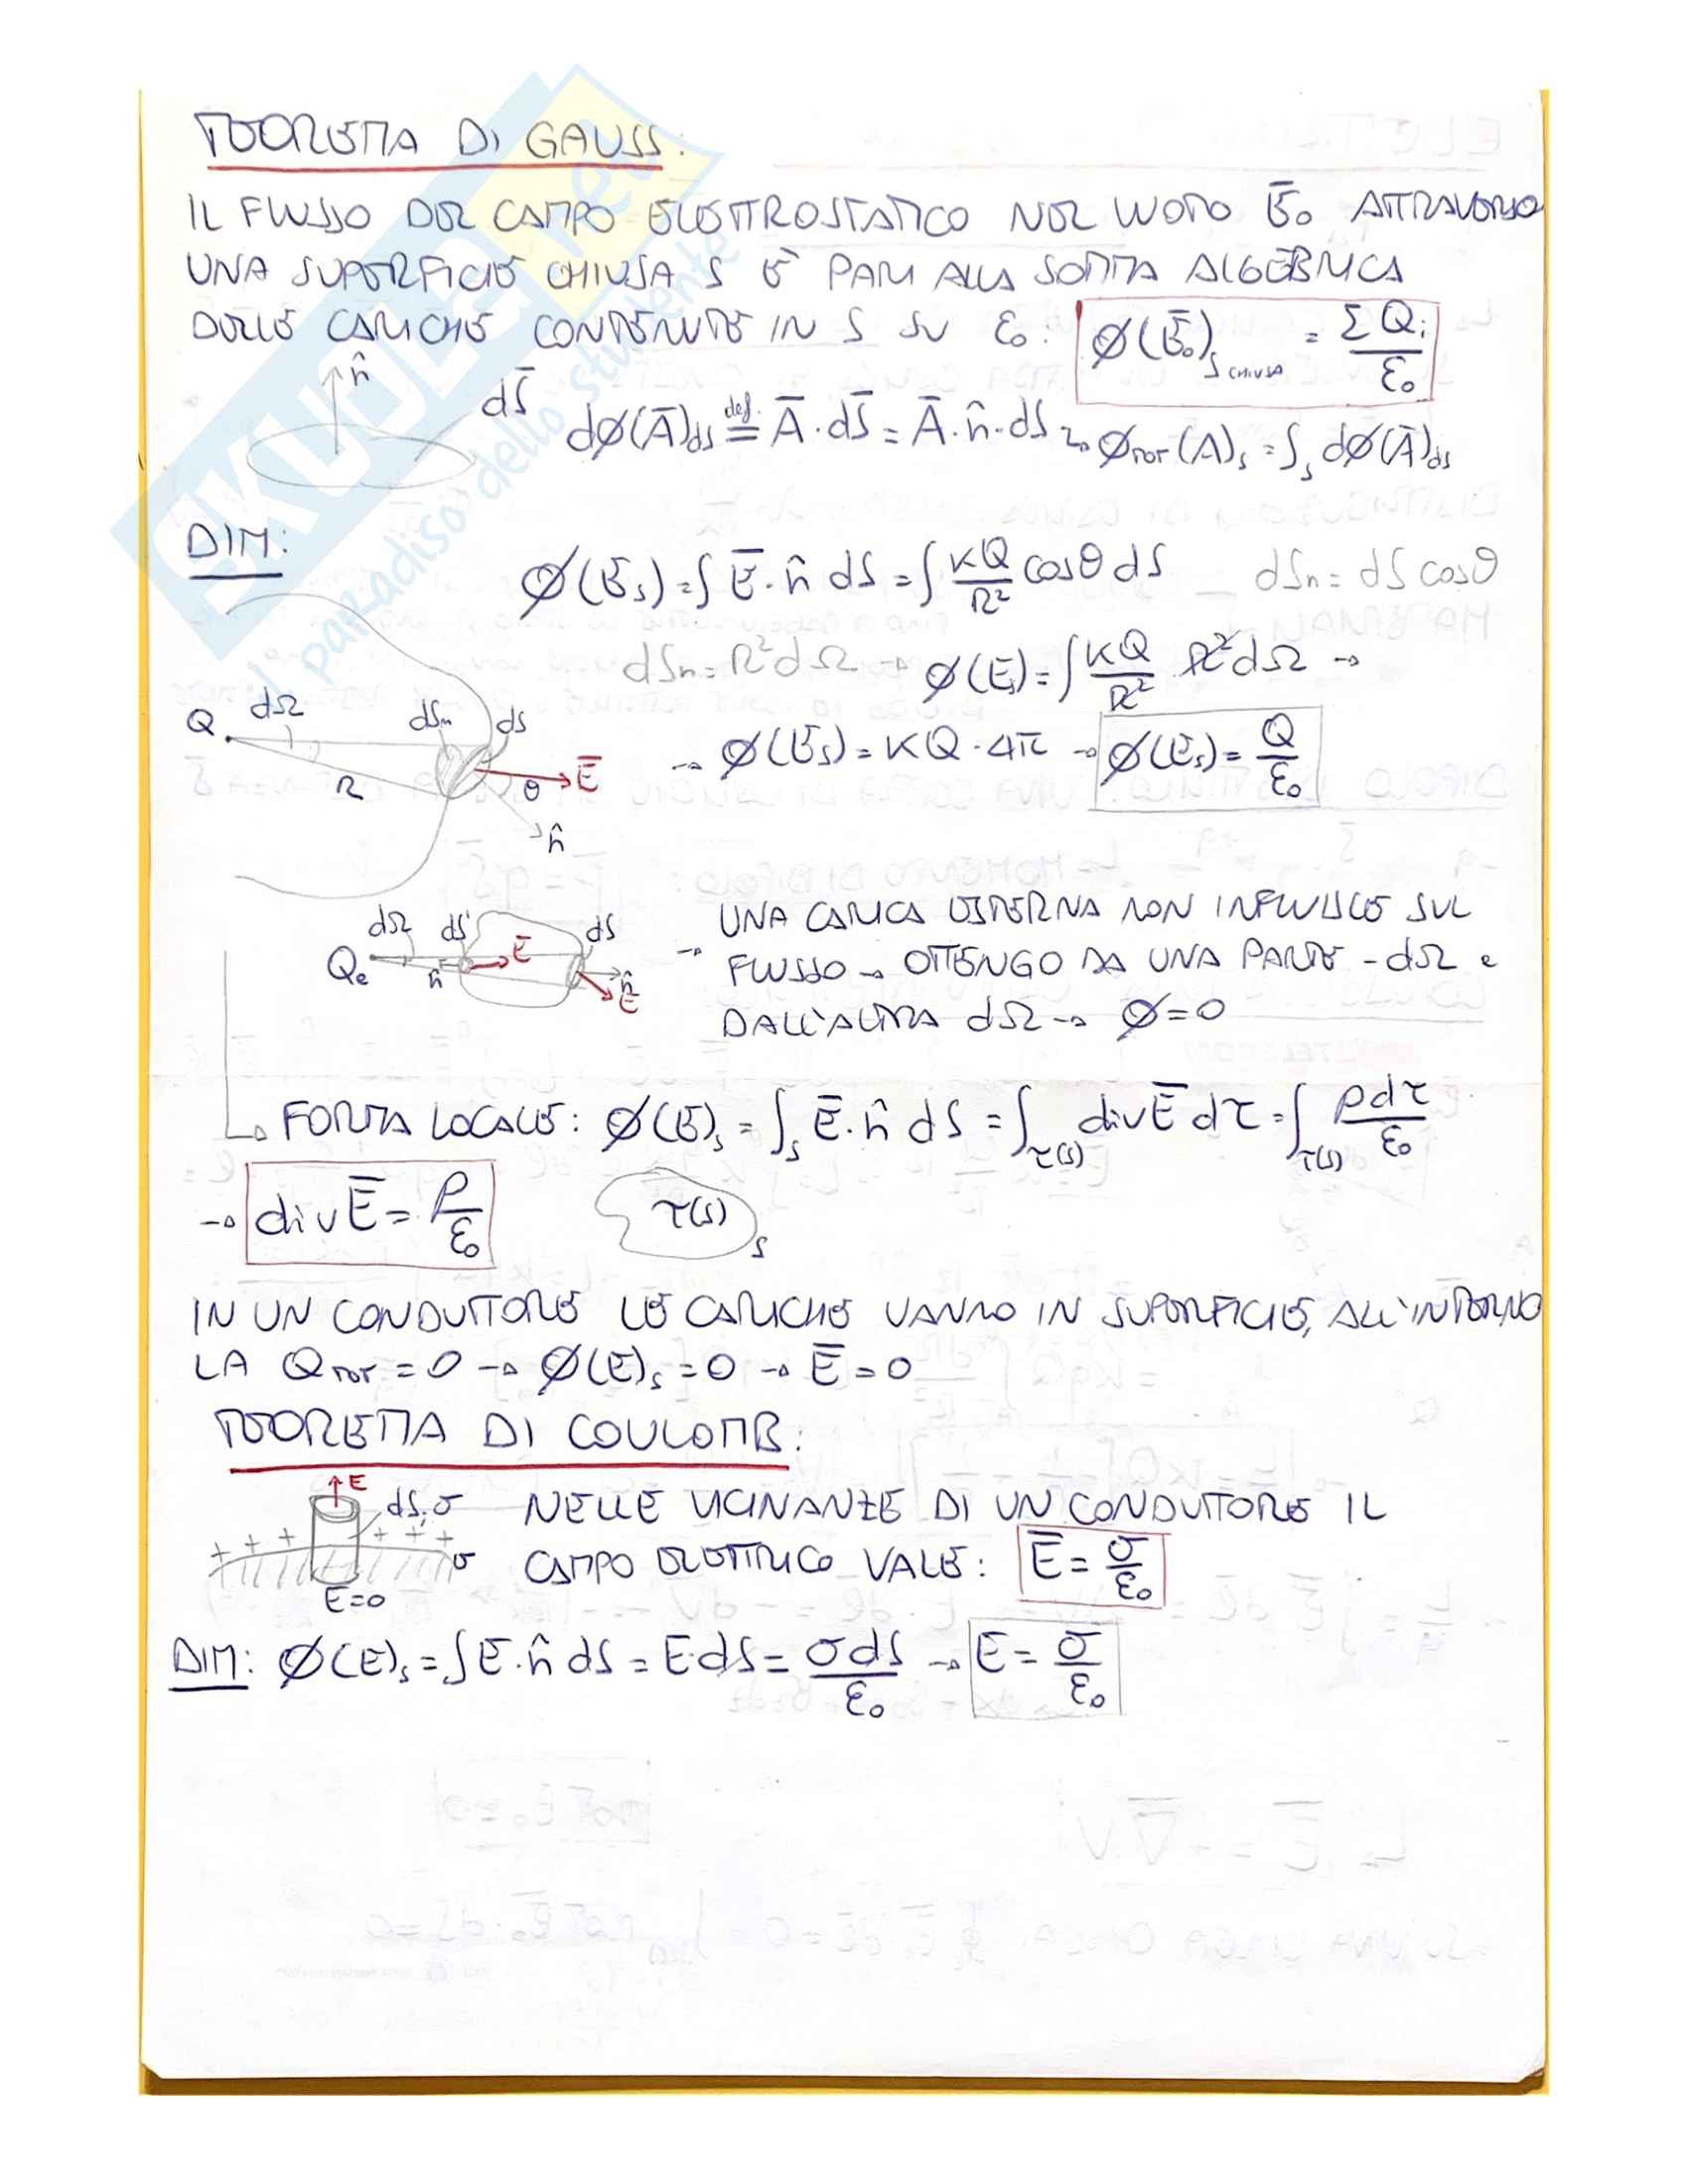 TEOREMA DI GAUSS:
IL FLUSSO DEL CAMPO ELETTROSTATICO NEL VUOTO Ē₀ ATTRAVERSO
UNA SUPERFICIE CHIUSA S È PARI ALLA SOMMA ALGEBRICA
DELLE CARICHE CONTENUTE IN S SU ε₀: Φ(Ē₀)S CHIUSA = ΣQi/ε₀
n̂ dS̄
dΦ(Ā)dS =def. Ā·dS̄ = Ā·n̂·dS → ΦTOT(A)S = ∫S dΦ(Ā)dS
DIM:
Φ(ĒS) = ∫Ē·n̂ dS = ∫ KQ/R² cosθ dS dSn = dS cosθ
dSn = R²dΩ → Φ(ES) = ∫ KQ/R² R²dΩ →
→ Φ(ĒS) = KQ·4π → Φ(ES) = Q/ε₀
Q dΩ dSn dS
R θ Ē
n̂
Qe dΩ n̂ dS' Ē dS n̂ Ē
→ UNA CARICA ESTERNA NON INFLUISCE SUL
FLUSSO → OTTENGO DA UNA PARTE -dΩ e
DALL'ALTRA dΩ → Φ=0
↳ FORMA LOCALE: Φ(E)S = ∫S Ē·n̂ dS = ∫τ(S) divĒ dτ = ∫τ(S) ρdτ/ε₀
→ divĒ = ρ/ε₀ τ(S) S
IN UN CONDUTTORE LE CARICHE VANNO IN SUPERFICIE, ALL'INTERNO
LA QTOT = 0 → Φ(E)S = 0 → Ē = 0
TEOREMA DI COULOMB:
E dS, σ + + + + + + σ E=0
NELLE VICINANZE DI UN CONDUTTORE IL
CAMPO ELETTRICO VALE: Ē = σ/ε₀
DIM: Φ(E)S = ∫E·n̂ dS = E·dS = σdS/ε₀ → E = σ/ε₀
SKUOLA.net
il paradiso dello studente